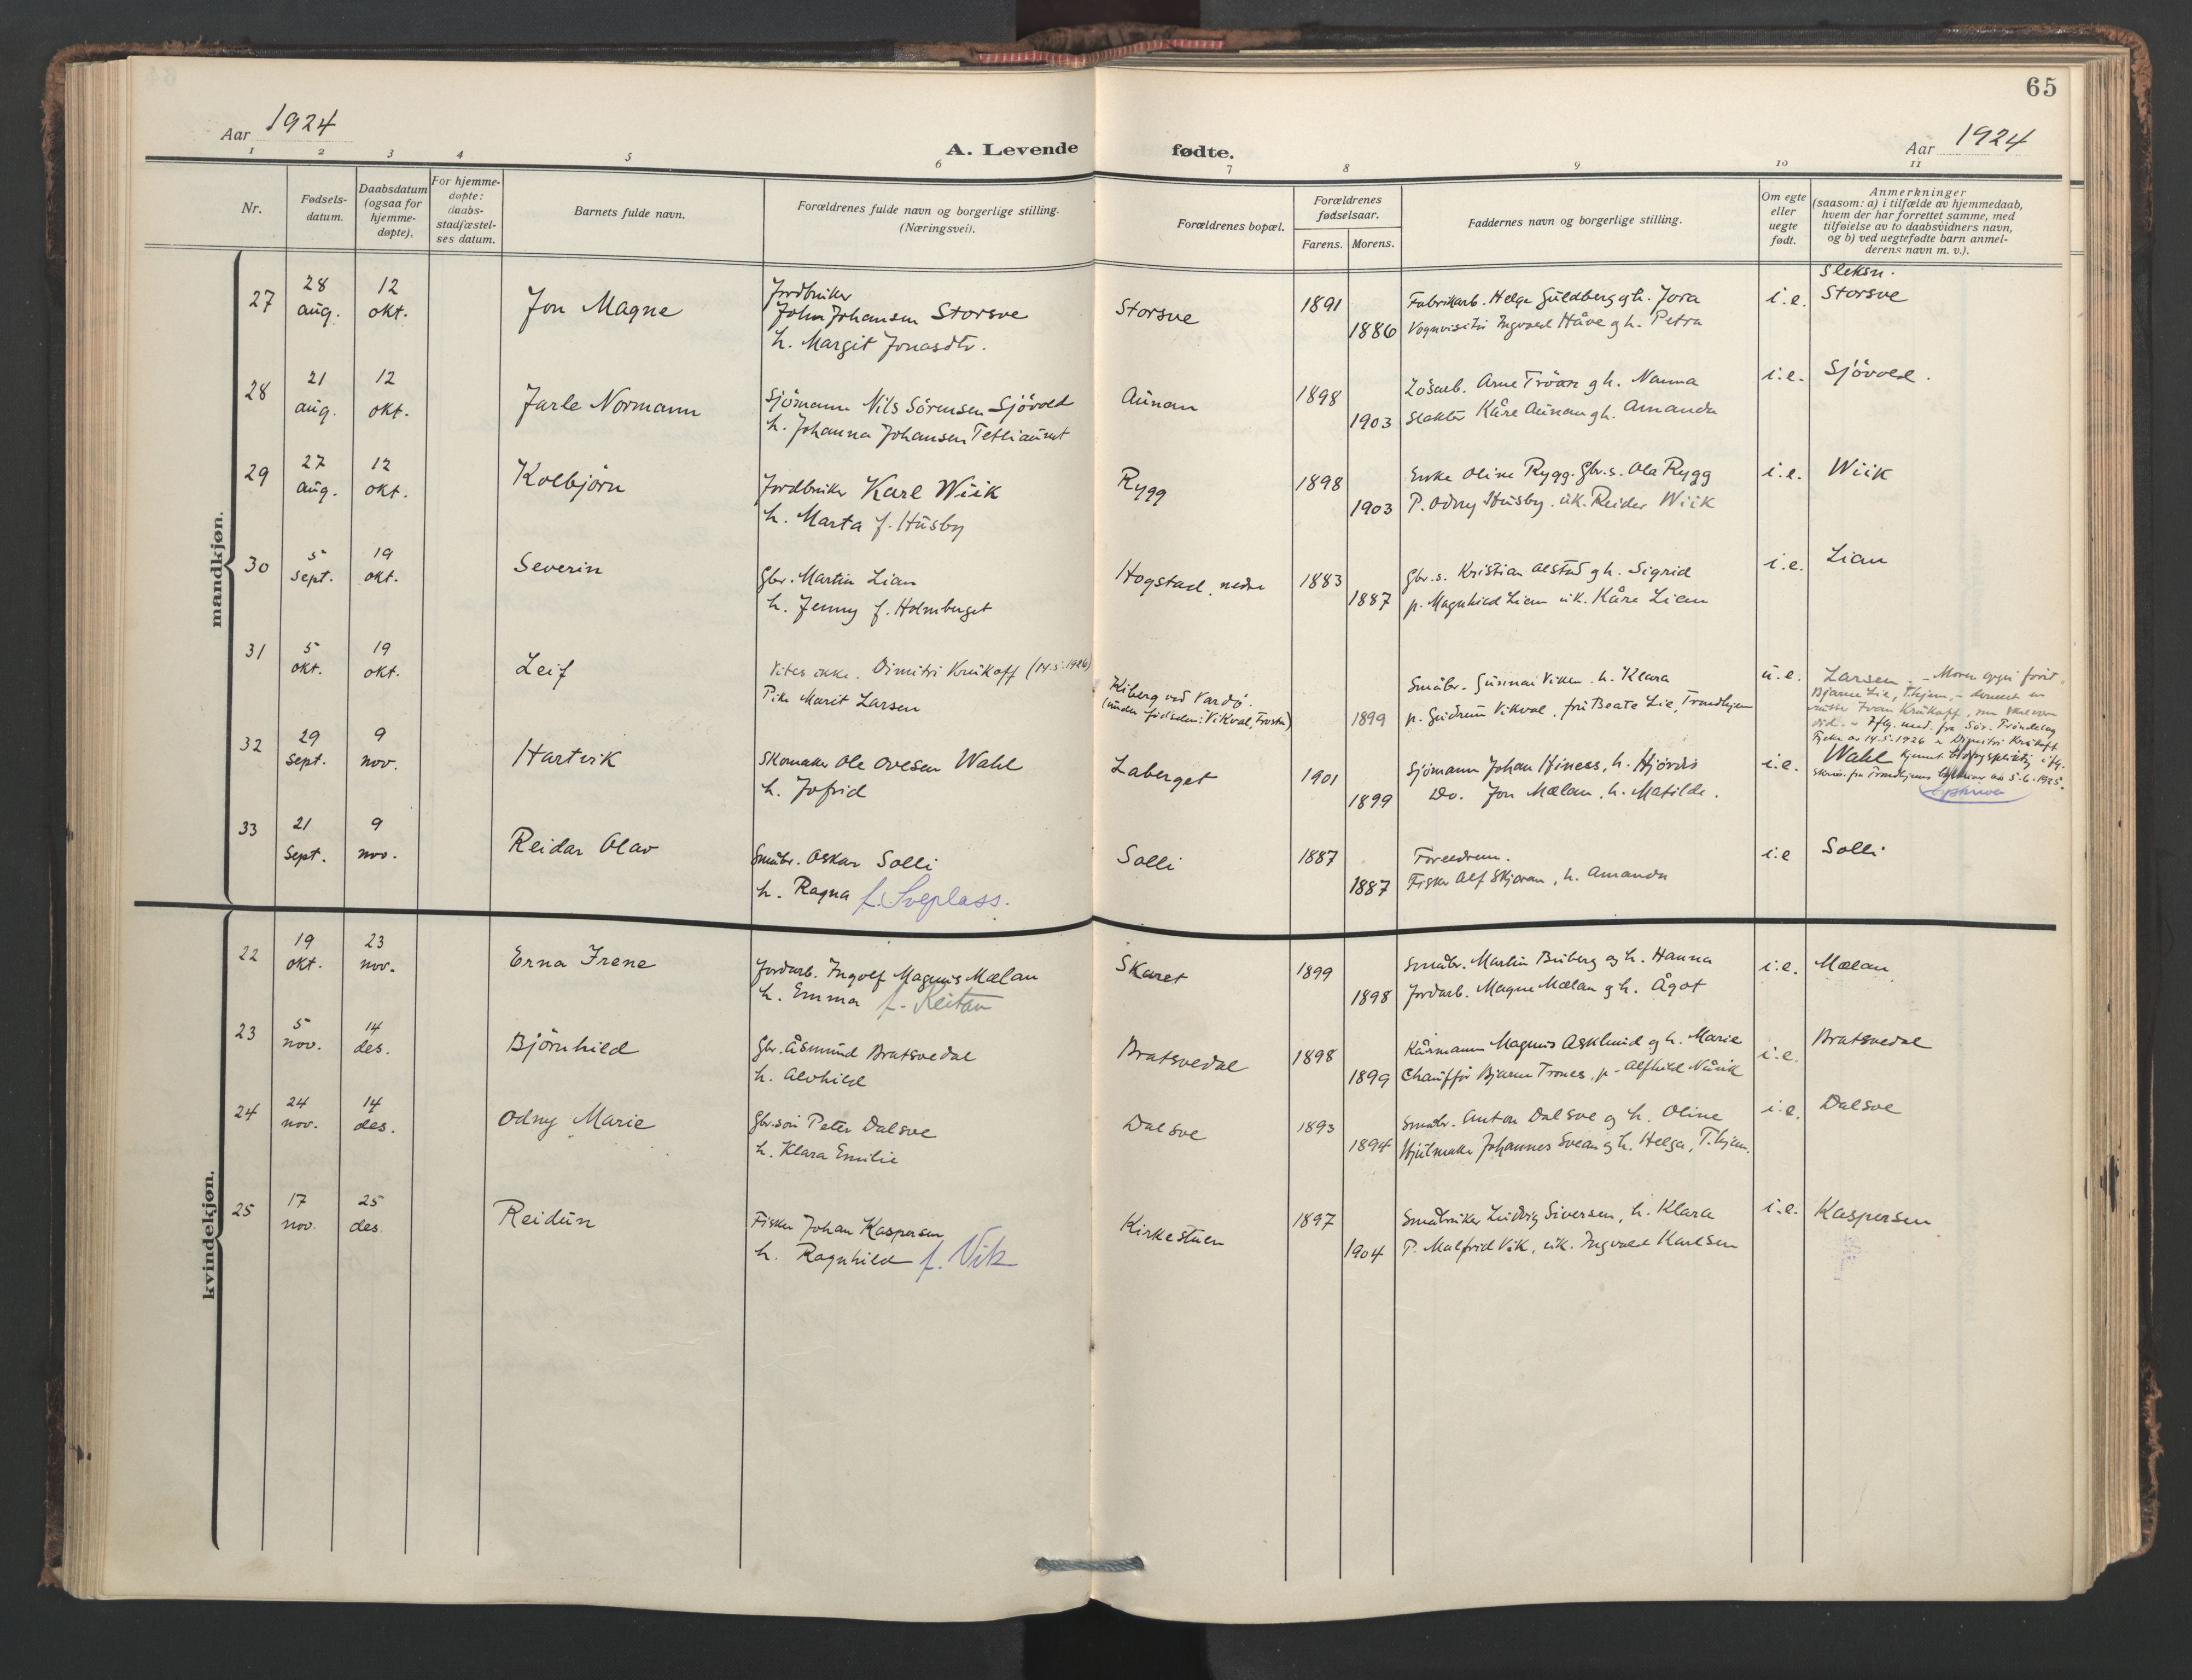 65
Aar 1924
A. Levende fødte.
Aar 1924
1 2 3 4 5 6 7 8 9 10 11
Nr.
Fødsels-
datum.
Daabsdatum
(ogsaa for
hjemme-
døpte).
For hjemme-
døpte:
daabs-
stadfæstel-
ses datum.
Barnets fulde navn.
Forældrenes fulde navn og borgerlige stilling.
(Næringsvei).
Forældrenes bopæl.
Forældrenes
fødselsaar.
Farens. Morens.
Faddernes navn og borgerlige stilling.
Om egte
eller
uegte
født.
Anmerkninger
(saasom: a) i tilfælde av hjemmedaab,
hvem der har forrettet samme, med
tilføielse av to daabsvidners navn,
og b) ved uegtefødte barn anmel-
derens navn m. v.).
mandkjøn.
27
28 aug.
12 okt.
Jon Magne
Jordbruker
John Johansen Storsve
h. Margit Jonasdtr.
Storsve
1891
1886
Fabrikarb. Helge Guldberg og h. Jora
Vognvisitör Ingvald Håve g h. Petra
i.e.
Sleksn.
Storsve
28
21 aug.
12 okt.
Jarle Normann
Sjömann Nils Sörensen Sjövold
h. Johanna Johansen
Aunan
1898
1903
Lösarb. Arne Tröan g h. Nanna
Slakter Kåre Aunan g h. Amanda
i.e.
Sjövold.
29
27 aug.
12 okt.
Kolbjörn
Jordbruker Karl Wiik
h. Marta f. Husby
Rygg
1898
1903
Enke Oline Rygg. Gbr.s. Ola Rygg
P. Odny Husby. uk. Reidar Wiik
i.e.
Wiik
30
5 sept.
19 okt.
Severin
Gbr. Martin Lian
h. Jenny f. Holmberget
Hogstad, nedre
1883
1887
Gbr.s. Kristian Alstad g h. Sigrid
p. Magnhild Lian uk. Kåre Lian
i.e.
Lian
31
5 okt.
19 okt.
Leif
Vites ikke. Dimitri Krukoff (14.5.1926)
Pike Marit Larsen
Kiberg ved Vardö.
(under födselen: Vikval, Frosta)
1899
Småbr. Gunnar Viken. h. Klara
p. Gudrun Vikval. fru Beate Lie, Trondhjem
u.e.
Larsen. - Moren opgir först
Bjarne Lie, T.hjem, - dernest en
Ivan Krukoff,
fra Sör-Tröndelag
Fylke av 14.5.1926 er Dimitri Krukoff
32
29 sept.
9 nov.
Hartvik
Skomaker Ole Ovesen Wahl
h. Jofrid
Laberget
1901
1899
Sjömann Johan Hiness, h. Hjördis
Do. Jon Mælan, h. Matilde.
i.e.
Wahl
33
21 sept.
9 nov.
Reidar Olav
Småbr. Oskar Solli
h. Ragna f. Sveplass.
Solli
1887
1887
Foreldrene.
Fisker Alf Skjeran, h. Amanda
i.e
Solli
kvindekjøn.
22
19 okt.
23 nov.
Erna Irene
Jordarb. Ingolf Magnus Mælan
h. Emma f. Reitan
Skaret
1899
1898
Småbr. Martin Buberg og h. Hanna
Jordarb. Magne Mælan g h. Ågot
i.e.
Mælan
23
5 nov.
14 des.
Björnhild
Gbr. Åsmund Bratsvedal
h. Alvhild
Bratsvedal
1898
1899
Kårmann Magnus Asklund g h. Marie
Chaufför Bjarne Trones, p. Alfhild
i.e.
Bratsvedal
24
24 nov.
14 des.
Odny Marie
Gbr.sön Peter Dalsve
h. Klara Emilie
Dalsve
1893
1894
Småbr. Anton Dalsve og h. Oline
Hjulmaker Johannes Svean g h. Helga, T.hjem.
i.e.
Dalsve
25
17 nov.
25 des.
Reidun
Fisker Johan Kaspersen
h. Ragnhild f. Vik
Kirkestuen
1897
1904
Småbruker Ludvig Siversen, h. Klara
P. Malfrid Vik, uk. Ingvald Karlsen
i.e.
Kaspersen